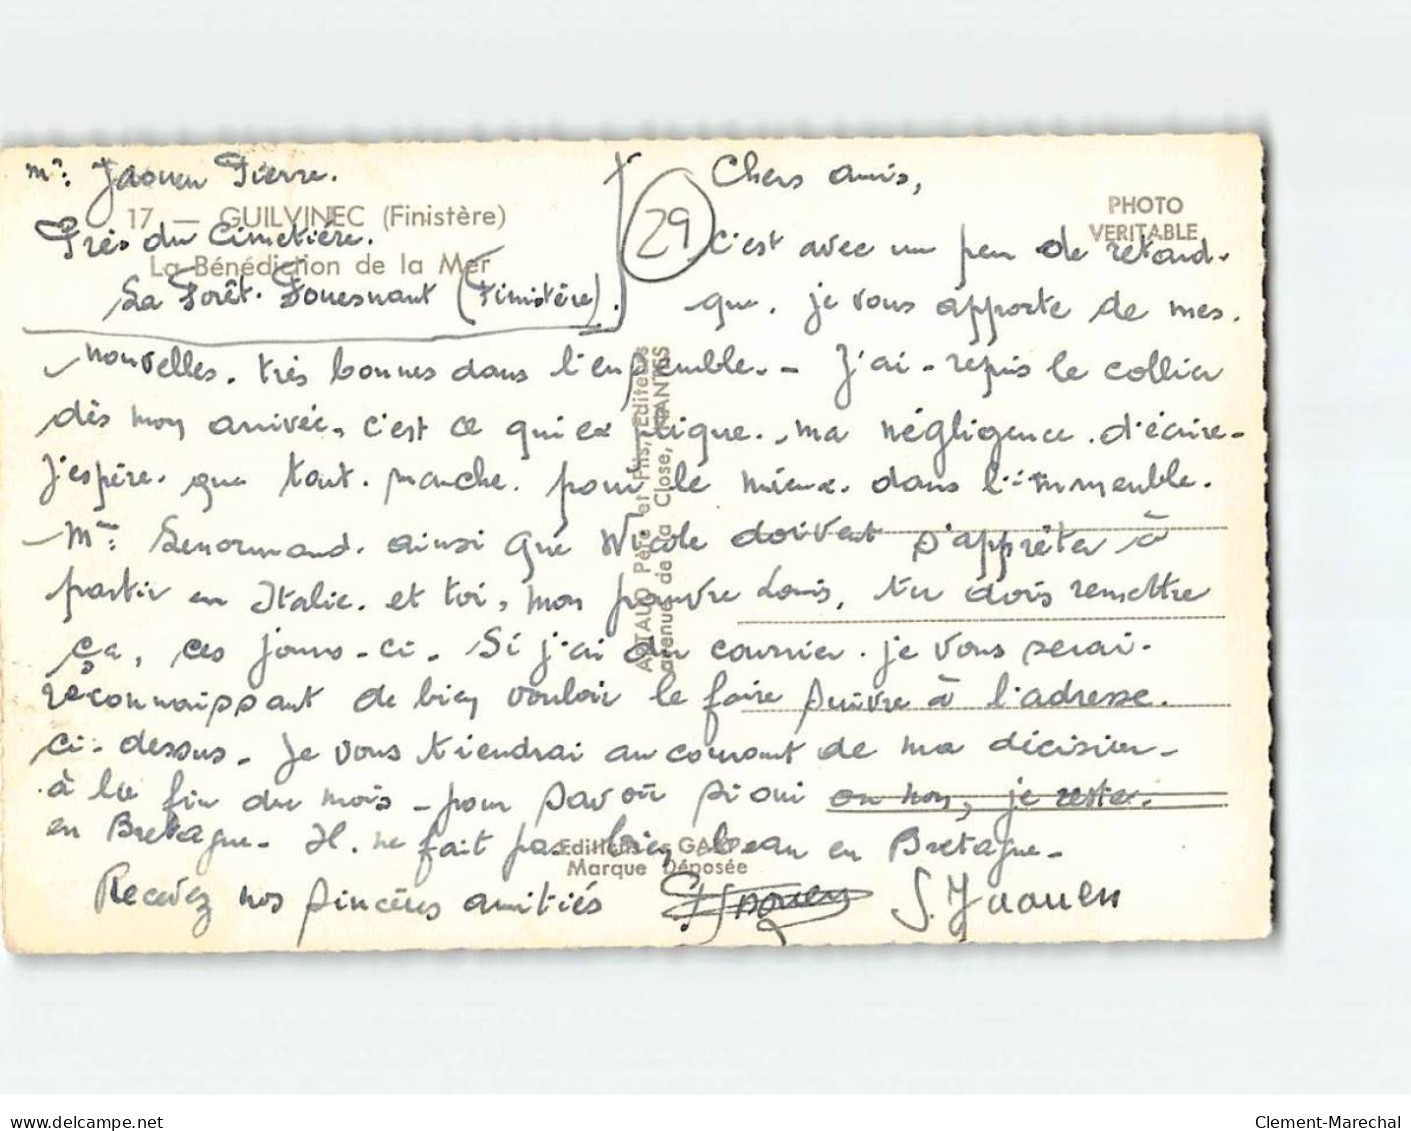 Mr: Jaouen Pierre.
17 — GUILVINEC (Finistère)
Près du Cimetière.
La Bénédiction de la Mer
La Forêt. Fouesnant (Finistère).
29
PHOTO
VERITABLE
Chers amis,
C'est avec un peu de retard.
que. je vous apporte de mes.
nouvelles. très bonnes dans l'ensemble. - J'ai - repris le collier
dès mon arrivée, c'est ce qui explique. ma négligence. d'écrire -
J'espère. que tout. marche. pour le mieux. dans l'immeuble.
- Mme Lenormand. ainsi que Nicole doivent s'apprêter à
partir en Italie. et toi, mon pauvre Louis, tu dois remettre
ça, ces jours-ci. Si j'ai du courrier. je vous serai.
reconnaissant de bien vouloir le faire suivre à l'adresse.
ci-dessus. Je vous tiendrai au courant de ma décision -
à la fin du mois - pour savoir si oui ou non, je reste.
en Bretagne. Il ne fait pas bien beau en Bretagne -
Recevez nos sincères amitiés Jaouen S. Jaouen
ARTAUD Père et Fils, Editeurs
avenue de la Close, NANTES
Editions GABY
Marque Déposée
www.delcampe.net
Clement-Marechal